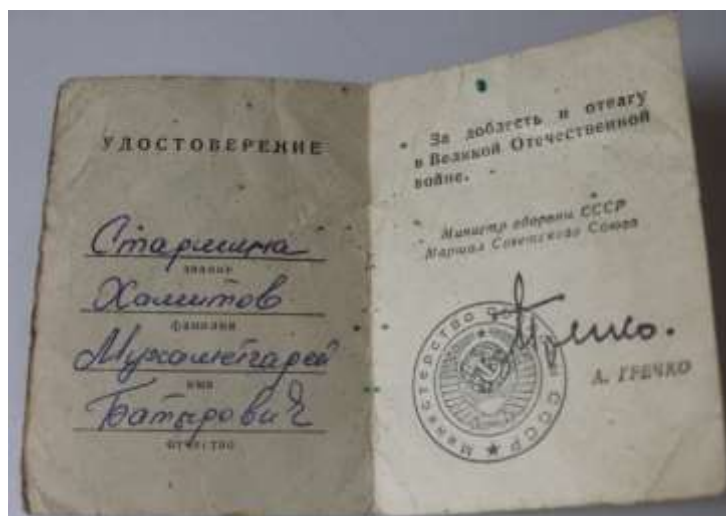 УДОСТОВЕРЕНИЕ
Старшина
звание
Хамитов
фамилия
Мухаметгарей
имя
Батырович
отчество
За доблесть и отвагу
в Великой Отечественной
войне.
Министр обороны СССР
Маршал Советского Союза
А. ГРЕЧКО
Министерство СССР